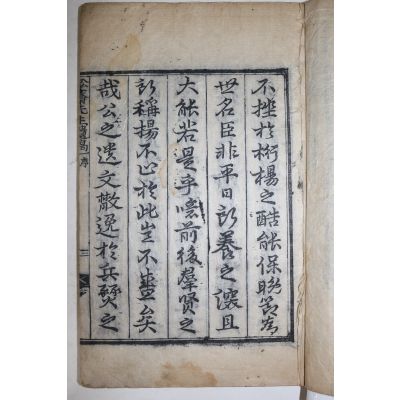 不挫於桁楊之酷能保晚節為
世名臣非平日所養之深且
大能若是乎噫前後羣賢之
所稱揚不止於此豈不盡矣
哉公之遺文散逸於兵燹之
先生
序
三